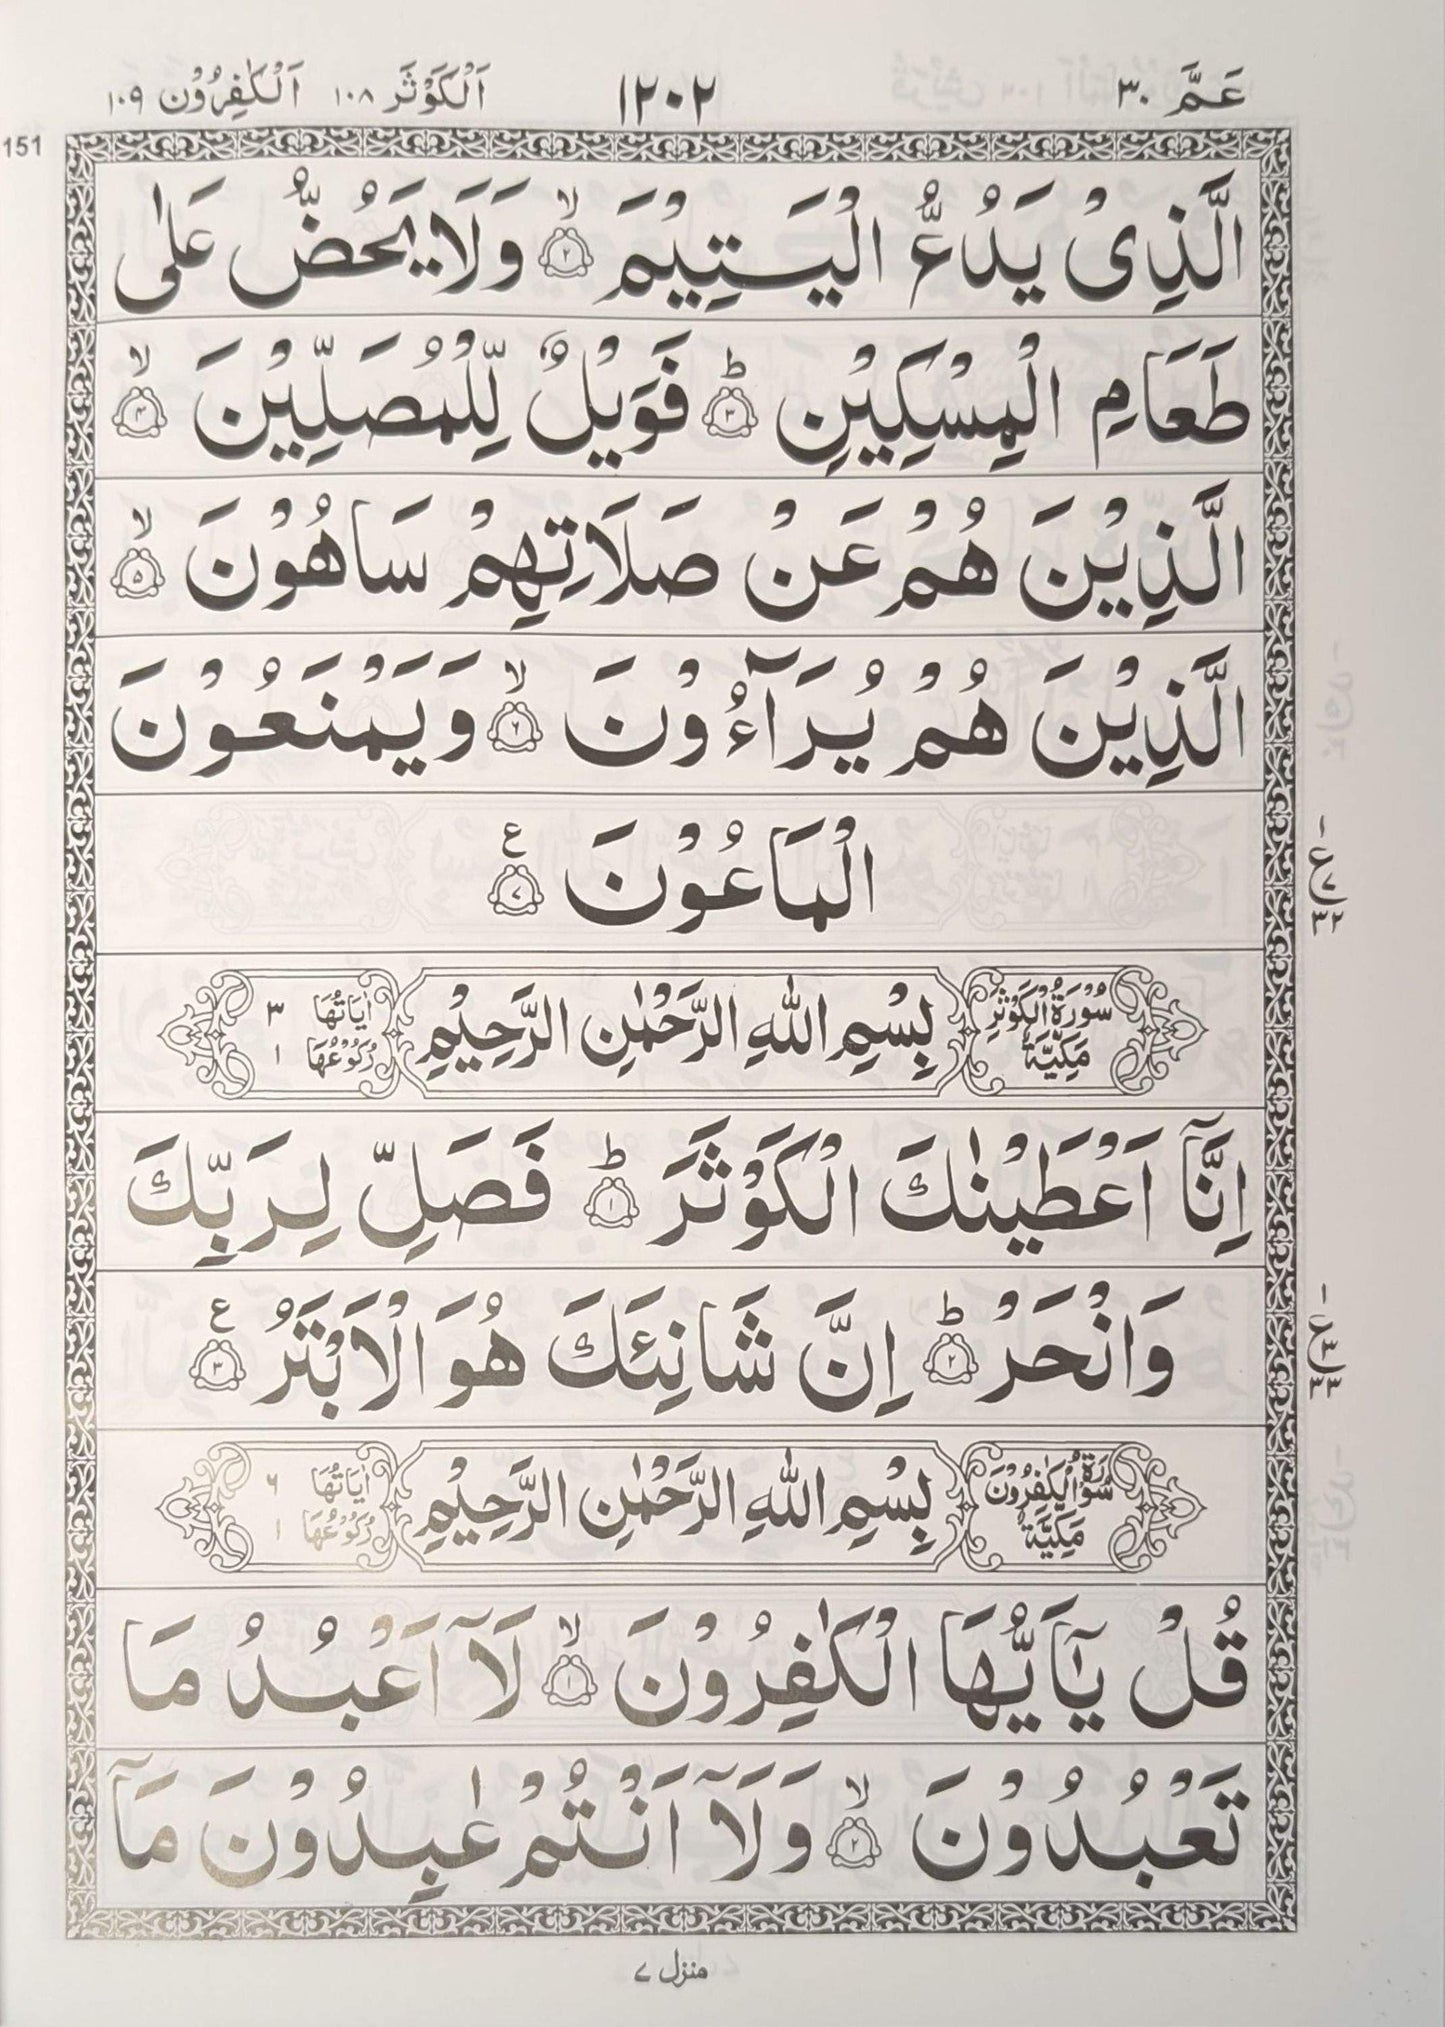 عَمَّ ٣٠ ١٢٠٢ اَلْكَوْثَر ١٠٨ اَلْكٰفِرُوْن ١٠٩
151
الَّذِىْ يَدُعُّ الْيَتِيْمَ ۙ‏﴿۲﴾ وَلَا يَحُضُّ عَلٰى
طَعَامِ الْمِسْكِيْنِ ؕ‏﴿۳﴾ فَوَيْلٌ لِّلْمُصَلِّيْنَ ۙ‏﴿۴﴾
الَّذِيْنَ هُمْ عَنْ صَلَاتِهِمْ سَاهُوْنَ ۙ‏﴿۵﴾
الَّذِيْنَ هُمْ يُرَآءُوْنَ ۙ‏﴿۶﴾ وَيَمْنَعُوْنَ
الْمَاعُوْنَ ﴿۷﴾ ع
ع ١ ٧ ٣٢
سُوْرَةُ الْكَوْثَرِ مَكِّيَّةٌ بِسْمِ اللّٰهِ الرَّحْمٰنِ الرَّحِيْمِ اٰيَاتُهَا ٣ رُكُوْعُهَا ١
اِنَّآ اَعْطَيْنٰكَ الْكَوْثَرَ ؕ‏﴿۱﴾ فَصَلِّ لِرَبِّكَ
وَانْحَرْ ؕ‏﴿۲﴾ اِنَّ شَانِئَكَ هُوَ الْاَبْتَرُ ﴿۳﴾ ع
ع ١ ٣ ٣٣
سُوْرَةُ الْكٰفِرُوْنَ مَكِّيَّةٌ بِسْمِ اللّٰهِ الرَّحْمٰنِ الرَّحِيْمِ اٰيَاتُهَا ۶ رُكُوْعُهَا ١
قُلْ يٰٓاَيُّهَا الْكٰفِرُوْنَ ۙ‏﴿۱﴾ لَآ اَعْبُدُ مَا
تَعْبُدُوْنَ ۙ‏﴿۲﴾ وَلَآ اَنْتُمْ عٰبِدُوْنَ مَآ
منزل ٧